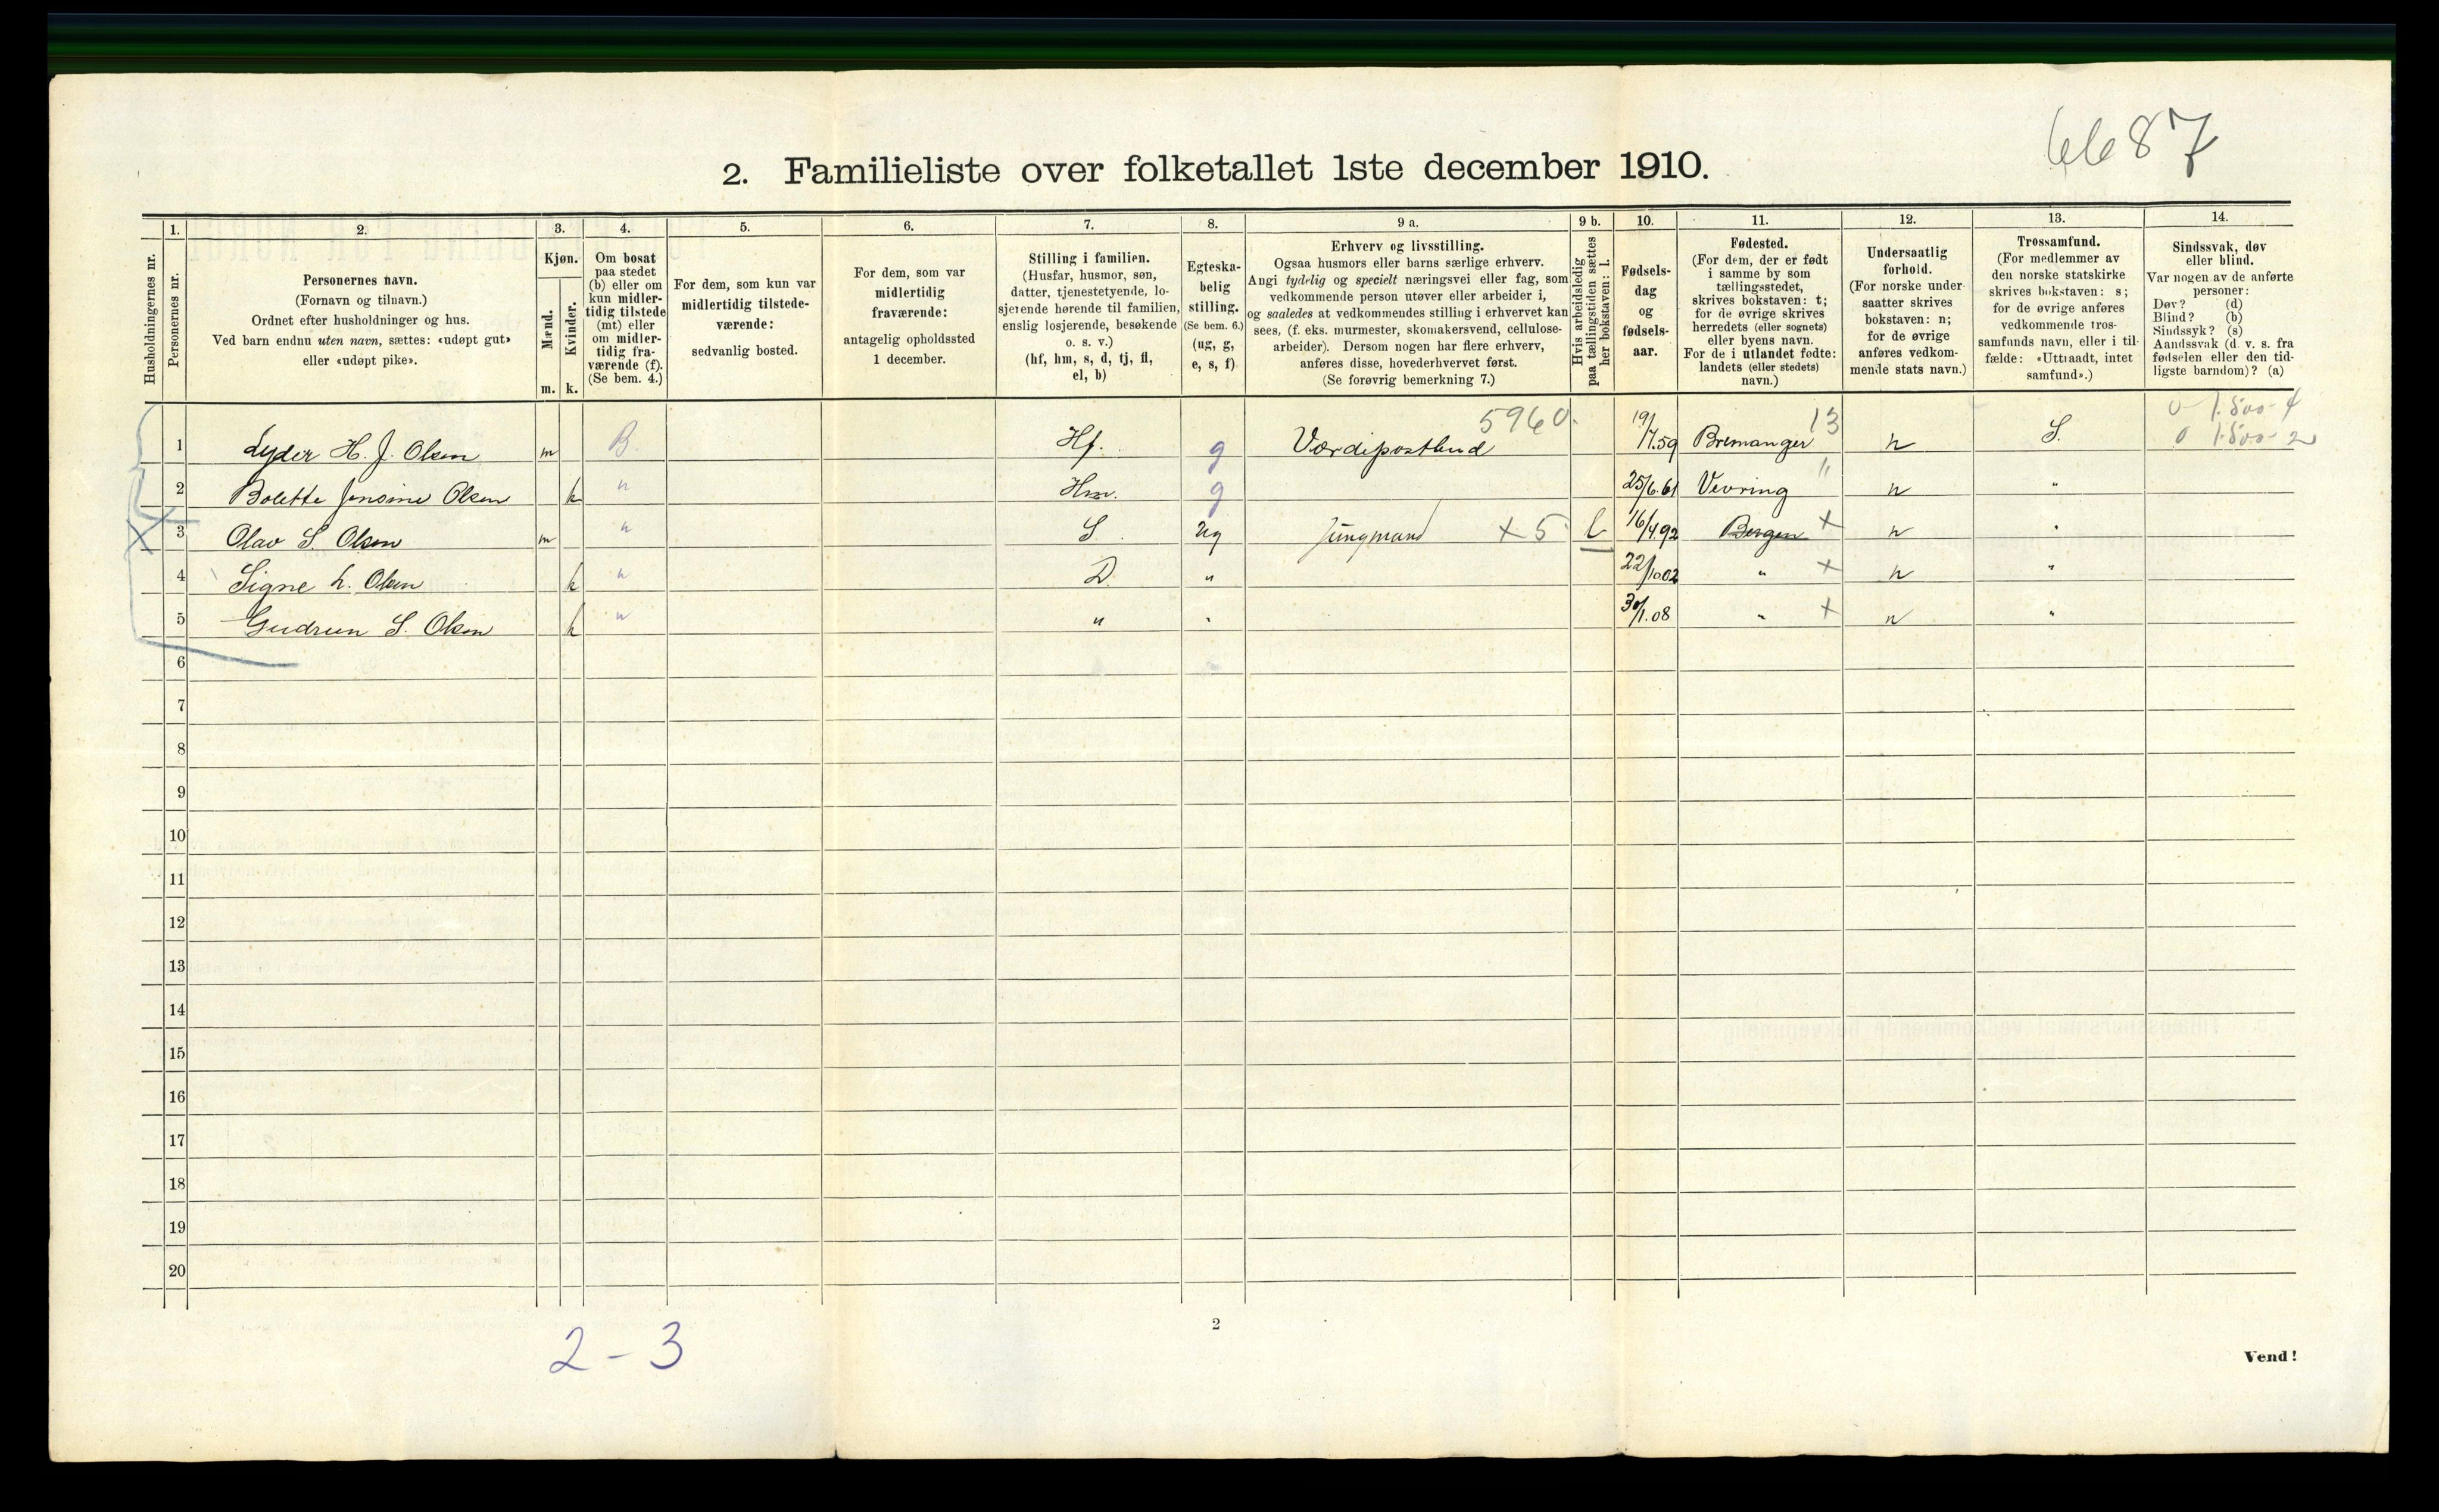 6687
2. Familieliste over folketallet 1ste december 1910.
1. 2. 3. 4. 5. 6. 7. 8. 9 a. 9 b. 10. 11. 12. 13. 14.
Husholdningernes nr.
Personernes nr.
Personernes navn.
(Fornavn og tilnavn.)
Ordnet efter husholdninger og hus.
Ved barn endnu uten navn, sættes: «udøpt gut»
eller «udøpt pike».
Kjøn.
Mænd.
Kvinder.
m. k.
Om bosat
paa stedet
(b) eller om
kun midler-
tidig tilstede
(mt) eller
om midler-
tidig fra-
værende (f).
(Se bem. 4.)
For dem, som kun var
midlertidig tilstede-
værende:
sedvanlig bosted.
For dem, som var
midlertidig
fraværende:
antagelig opholdssted
1 december.
Stilling i familien.
(Husfar, husmor, søn,
datter, tjenestetyende, lo-
sjerende hørende til familien,
enslig losjerende, besøkende
o. s. v.)
(hf, hm, s, d, tj, fl,
el, b)
Egteska-
belig
stilling.
(Se bem. 6.)
(ug, g,
e, s, f)
Erhverv og livsstilling.
Ogsaa husmors eller barns særlige erhverv.
Angi tydelig og specielt næringsvei eller fag, som
vedkommende person utøver eller arbeider i,
og saaledes at vedkommendes stilling i erhvervet kan
sees, (f. eks. murmester, skomakersvend, cellulose-
arbeider). Dersom nogen har flere erhverv,
anføres disse, hovederhvervet først.
(Se forøvrig bemerkning 7.)
Hvis arbeidsledig
paa tællingstiden sættes
her bokstaven: l.
Fødsels-
dag
og
fødsels-
aar.
Fødested.
(For dem, der er født
i samme by som
tællingsstedet,
skrives bokstaven: t;
for de øvrige skrives
herredets (eller sognets)
eller byens navn.
For de i utlandet fødte:
landets (eller stedets)
navn.)
Undersaatlig
forhold.
(For norske under-
saatter skrives
bokstaven: n;
for de øvrige
anføres vedkom-
mende stats navn.)
Trossamfund.
(For medlemmer av
den norske statskirke
skrives bokstaven: s;
for de øvrige anføres
vedkommende tros-
samfunds navn, eller i til-
fælde: «Uttraadt, intet
samfund».)
Sindssvak, døv
eller blind.
Var nogen av de anførte
personer:
Døv? (d)
Blind? (b)
Sindssyk? (s)
Aandssvak (d. v. s. fra
fødselen eller den tid-
ligste barndom)? (a)
5960. 13 0 1.800-4
1 Lyder H. J. Olsen m B. Hf. g Værdipostbud 19/7.59 Bremanger n S. 0 1.800-2
2 Bolette Jensine Olsen k " Hm. g 25/6.61 Vevring " n "
3 Olav S. Olsen m " S ug Jungmand x 5 l 16/4.92 Bergen x n "
4 Signe L. Olsen k " D. " 22/10 02 " x n "
5 Gudrun S. Olsen k " " " 30/1.08 " x n "
6
7
8
9
10
11
12
13
14
15
16
17
18
19
20
2 - 3
2
Vend!